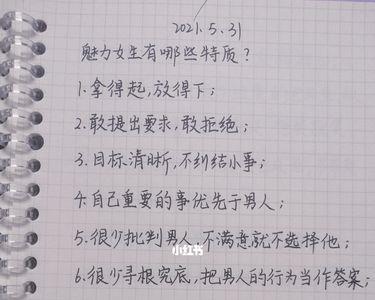 2021.5.31
魅力女生有哪些特质？
1.拿得起,放得下；
2.敢提出要求,敢拒绝；
3.目标清晰,不纠结小事；
4.自己重要的事优先于男人；
5.很少批判男人,不满意就不选择他；
小红书
6.很少寻根究底,把男人的行为当作答案；